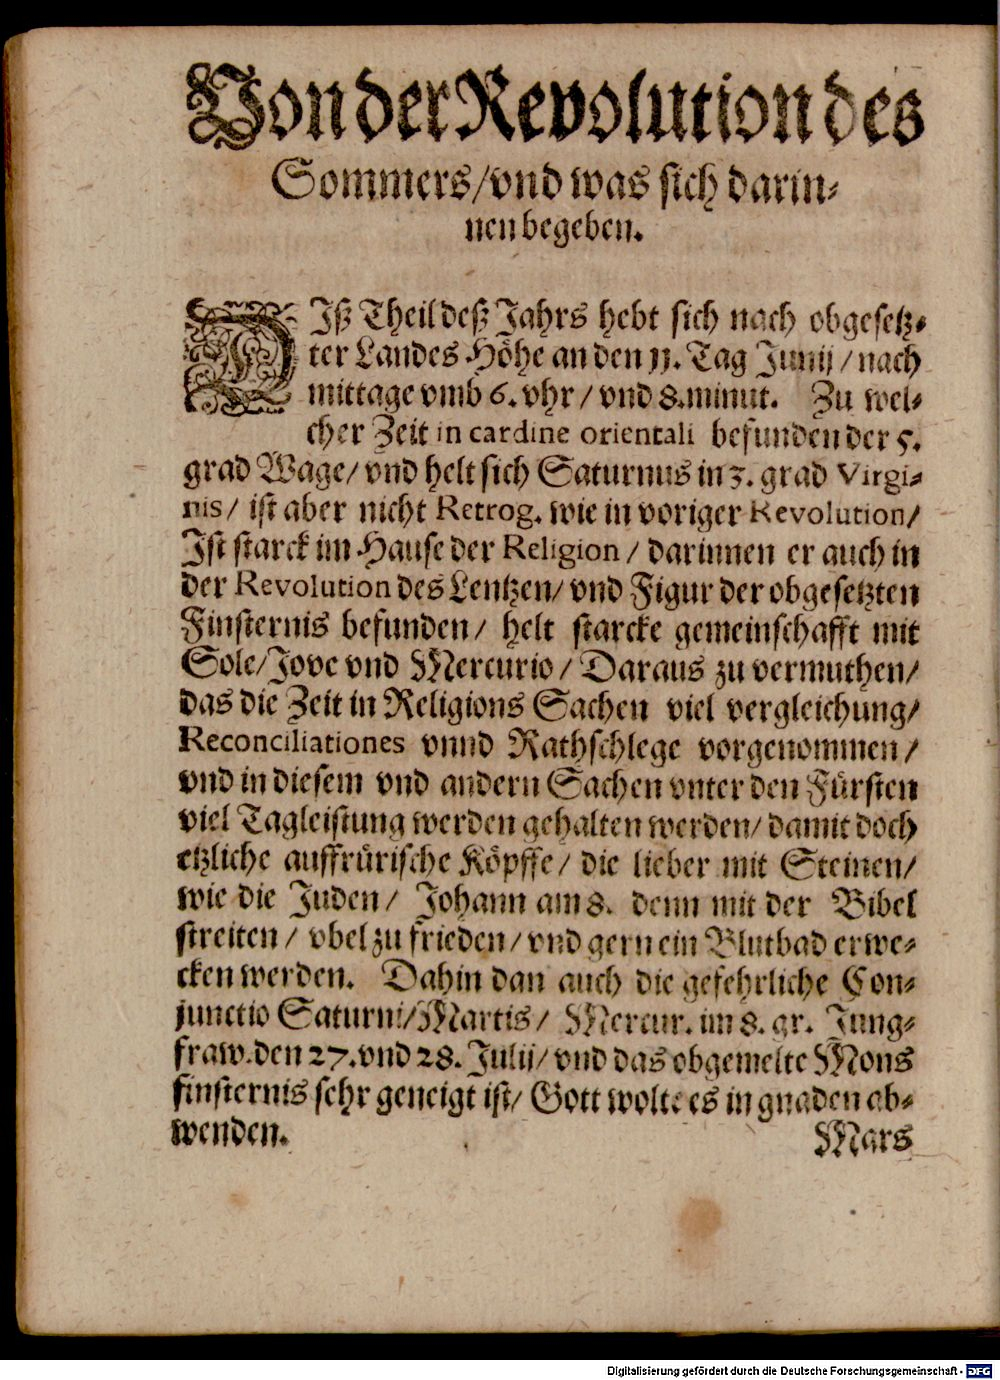 Von der Revolution des
Sommers/vnd was sich darin⸗
nen begeben.
DIß Theil deß Jahrs hebt sich nach obgesetz⸗
ter Landes Höhe an den 11. Tag Junij/nach
mittage vmb 6. vhr/vnd 8. minut. Zu wel⸗
cher Zeit in cardine orientali befunden der 5.
grad Wage/vnd helt sich Saturnus in 3. grad Virgi⸗
nis/ ist aber nicht Retrog. wie in voriger Revolution/
Ist starck im Hause der Religion/ darinnen er auch in
der Revolution des Lentzen/ vnd Figur der obgesetzten
Finsternis befunden/ helt starcke gemeinschafft mit
Sole/Jove vnd Mercurio/ Daraus zu vermuthen/
das die Zeit in Religions Sachen viel vergleichung/
Reconciliationes vnnd Rathschlege vorgenommen/
vnd in diesem vnd andern Sachen vnter den Fürsten
viel Tagleistung werden gehalten werden/ damit doch
etzliche auffrürische Köpffe/ die lieber mit Steinen/
wie die Juden/ Johann am 8. denn mit der Bibel
streiten/ vbel zu frieden/ vnd gern ein Blutbad erwe⸗
cken werden. Dahin dan auch die gefehrliche Con⸗
junctio Saturni/Martis/ Mercur. im 8. gr. Jung⸗
fraw. den 27. vnd 28. Julij/ vnd das obgemelte Mons
finsternis sehr geneigt ist/ Gott wolte es in gnaden ab⸗
wenden.
Mars
Digitalisierung gefördert durch die Deutsche Forschungsgemeinschaft - DFG